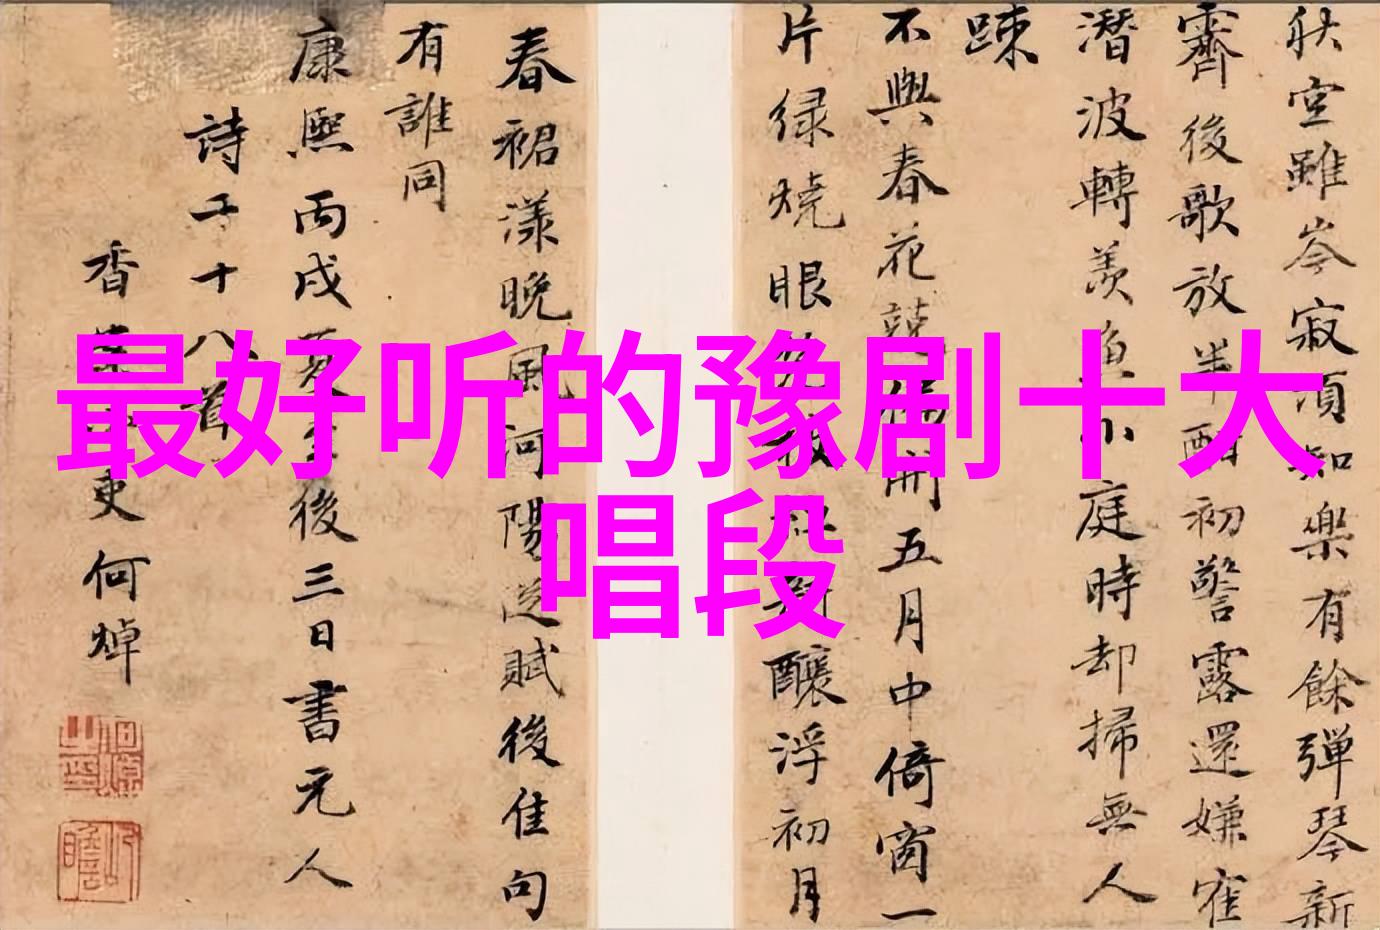 最好听的豫剧十大
唱段
秋空雖岑寂須知樂有餘彈琴新
霽後歌放半酣初警露還嫌窄
潛波轉羨魚小庭時却掃無人
踈
不與春花競開五月中倚窗一
片緑燒眼釀浮初月
春裙漾晚風河陽送賦後佳句
有誰同
康熙丙戌夏至後三日書元人
詩二十八首
香吏何焯